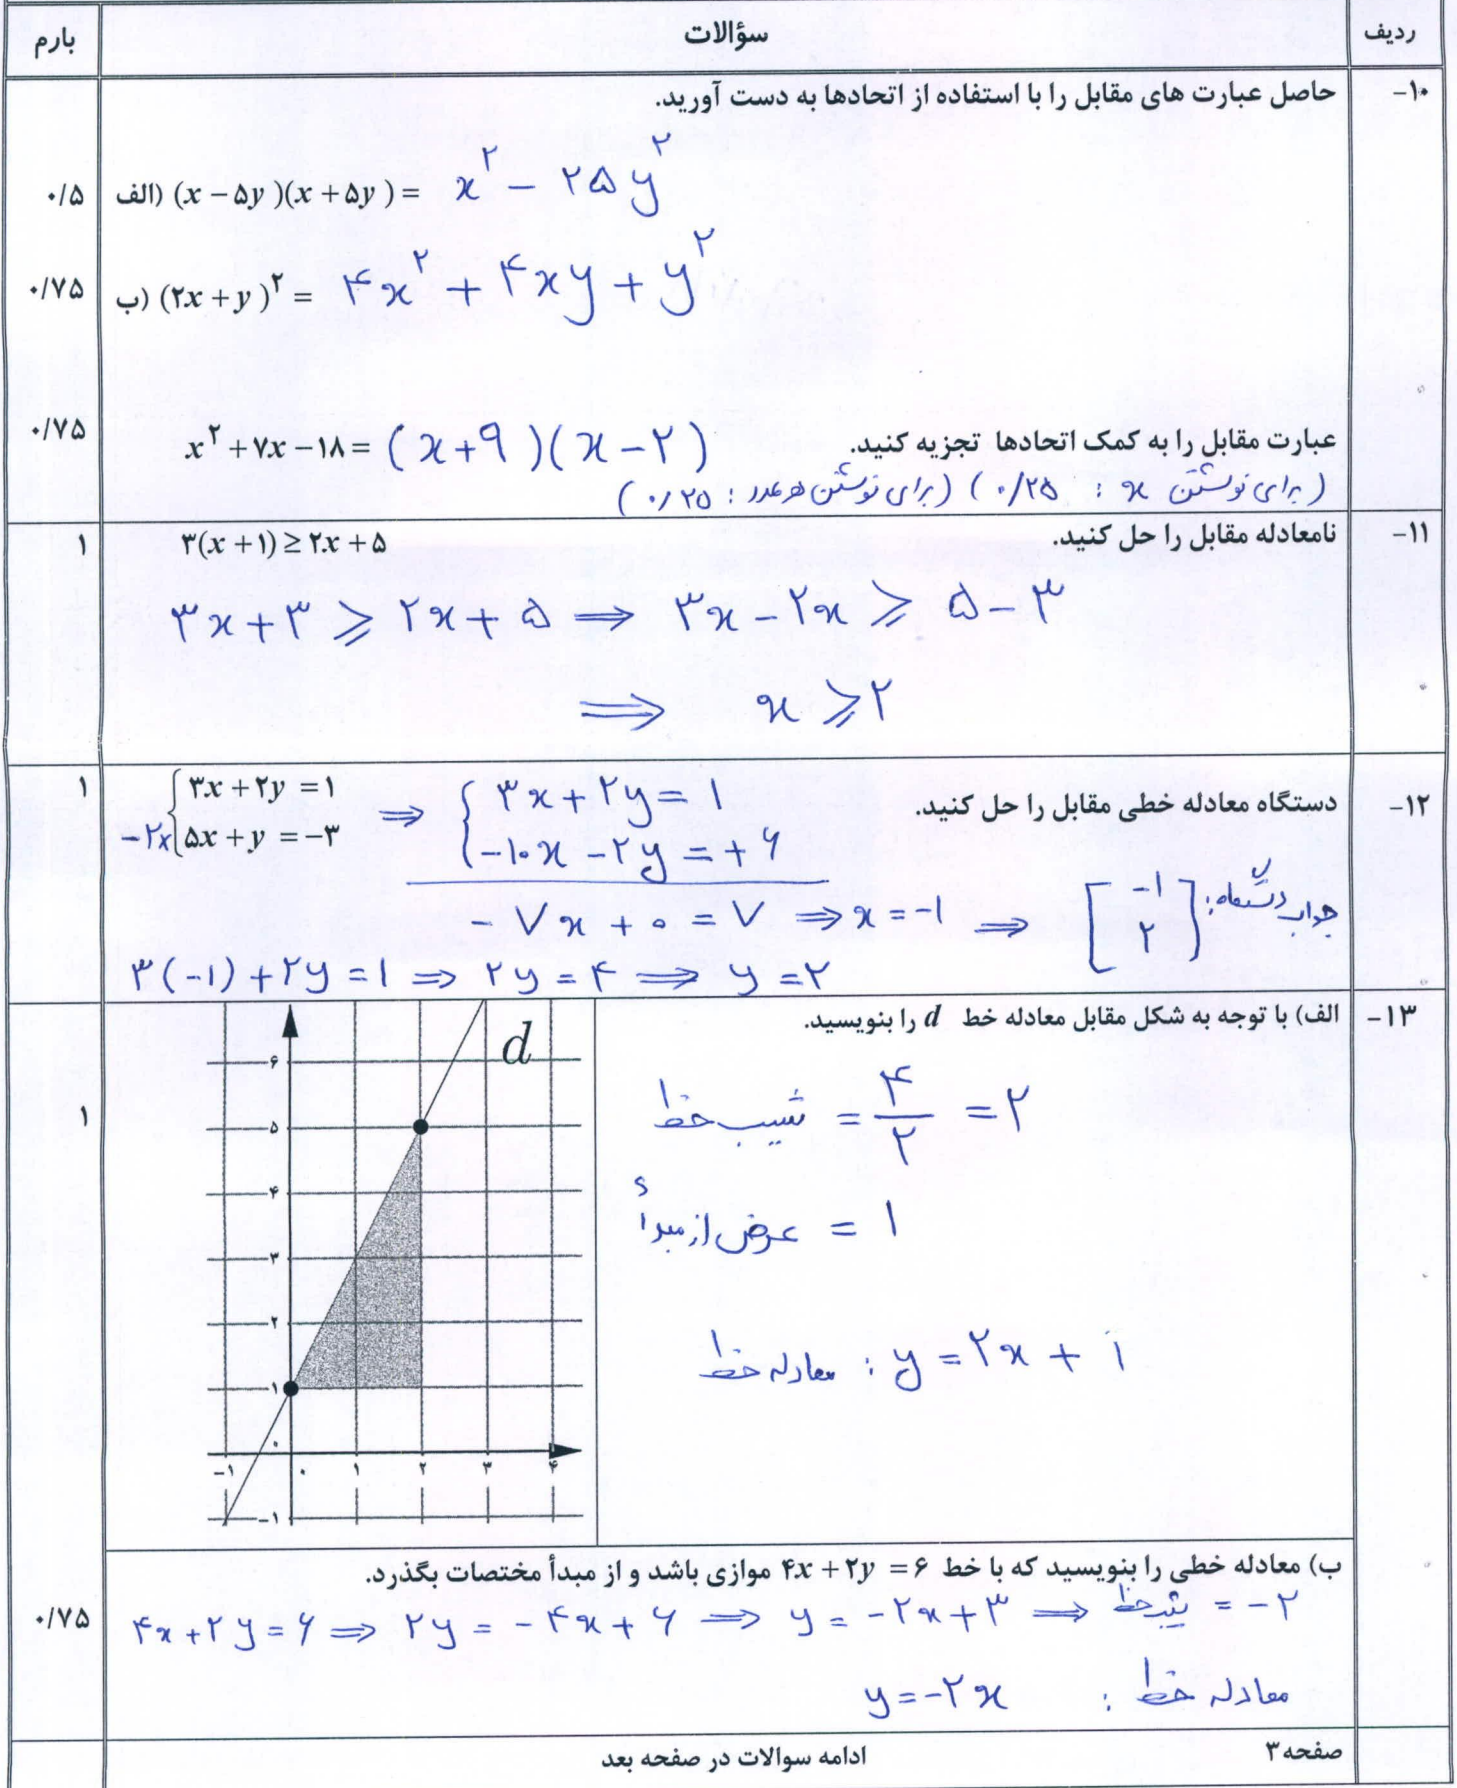 ردیف سؤالات بارم
۱۰- حاصل عبارت های مقابل را با استفاده از اتحادها به دست آورید.
الف) (x - ۵y)(x + ۵y) = x^۲ - ۲۵y^۲ ۰/۵
ب) (۲x + y)^۲ = ۴x^۲ + ۴xy + y^۲ ۰/۷۵
عبارت مقابل را به کمک اتحادها تجزیه کنید. x^۲ + ۷x - ۱۸ = (x+۹)(x-۲) ۰/۷۵
(برای نوشتن x : ۰/۲۵) (برای نوشتن هر عدد : ۰/۲۵)
۱۱- نامعادله مقابل را حل کنید. ۳(x + ۱) ≥ ۲x + ۵ ۱
۳x + ۳ ≥ ۲x + ۵ ⇒ ۳x - ۲x ≥ ۵ - ۳
⇒ x ≥ ۲
۱۲- دستگاه معادله خطی مقابل را حل کنید. ۱
{ ۳x + ۲y = ۱ ⇒ { ۳x + ۲y = ۱
-۲× { ۵x + y = -۳ { -۱۰x - ۲y = +۶
- ۷x + ۰ = ۷ ⇒ x = -۱ ⇒ جواب دستگاه: [-۱ ۲]
۳(-۱) + ۲y = ۱ ⇒ ۲y = ۴ ⇒ y = ۲
۱۳- الف) با توجه به شکل مقابل معادله خط d را بنویسید. ۱
شیب خط = ۴/۲ = ۲
عرض از مبدأ = ۱
معادله خط : y = ۲x + ۱
d
۶
۵
۴
۳
۲
۱
۰
-۱ ۰ ۱ ۲ ۳ ۴
-۱
ب) معادله خطی را بنویسید که با خط ۴x + ۲y = ۶ موازی باشد و از مبدأ مختصات بگذرد. ۰/۷۵
۴x + ۲y = ۶ ⇒ ۲y = -۴x + ۶ ⇒ y = -۲x + ۳ ⇒ شیب خط = -۲
معادله خط : y = -۲x
صفحه ۳ ادامه سوالات در صفحه بعد